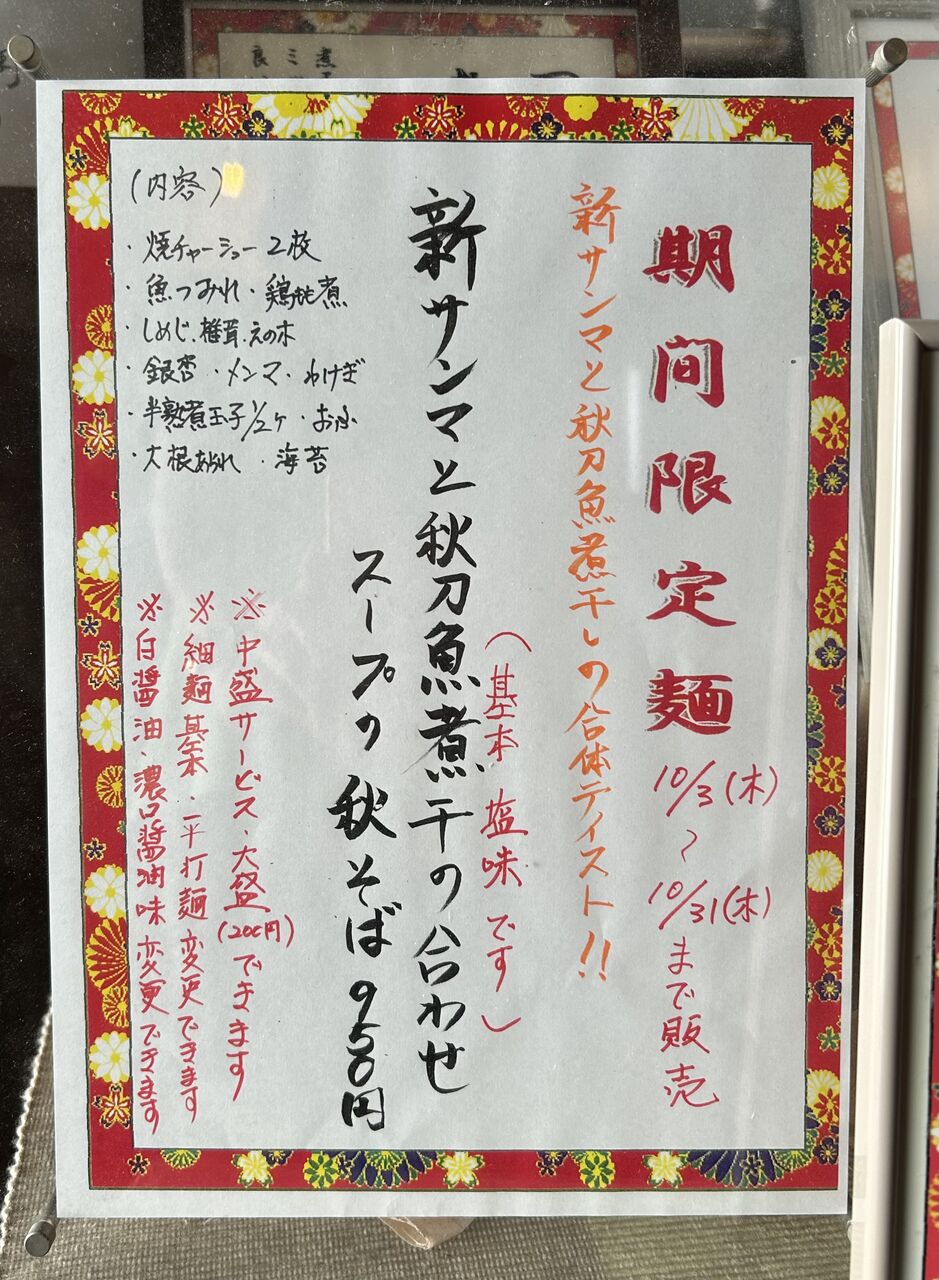 期間限定麺
10/3(木)
〜
10/31(木)
まで販売
新サンマと秋刀魚煮干しの合体テイスト!!
(基本 塩味です)
新サンマと秋刀魚煮干の合わせ
スープの秋そば 950円
(内容)
・焼チャーシュー2枚
・魚つみれ・鶏もも煮
・しめじ・椎茸・えの木
・銀杏・メンマ・わけぎ
・半熟煮玉子1/2ケ・おふ
・大根あられ・海苔
※中盛サービス・大盛(200円)できます
※細麺基本・平打麺変更できます
※白醤油・濃口醤油味変更できます